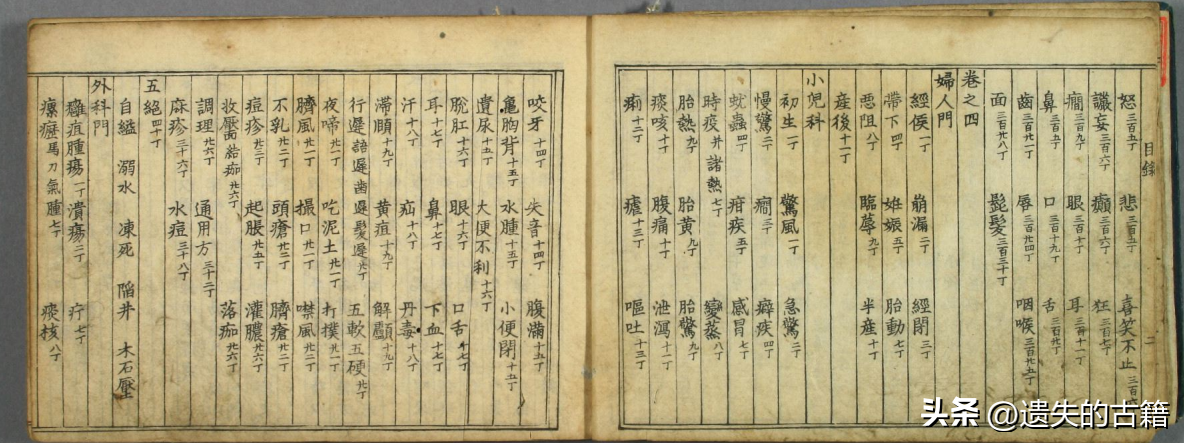 目錄 二
怒三百五丁 悲三百五丁 喜笑不止三百
譫妄三百六丁 癲三百六丁 狂三百七丁
癎三百九丁 眼三百十丁 耳三百十一丁
鼻 口三百十九丁 舌三百廿丁
齒三百廿一丁 唇三百廿四丁 咽喉三百廿五丁
面三百廿八丁 髭髮三百三十丁
卷之四
婦人門
經候一丁 崩漏二丁 經閉三丁
帶下四丁 姙娠五丁 胎動七丁
惡阻八丁 臨蓐九丁 半産十丁
産後十一丁
小兒科
初生一丁 驚風一丁 急驚二丁
慢驚二丁 癎三丁 癖疾四丁
蚘蟲四丁 疳疾五丁 感冒七丁
時疫并諸熱七丁 變蒸八丁
胎熱九丁 胎黃九丁 胎驚九丁
痰咳十丁 腹痛十丁 泄瀉十一丁
痢十二丁 瘧十三丁 嘔吐十三丁
咬牙十四丁 失音十四丁 腹滿十五丁
龜胸背十五丁 水腫十五丁 小便閉十五丁
遺尿十五丁 大便不利十六丁
脫肛十六丁 眼十六丁 口舌十七丁
耳十七丁 鼻十七丁 下血十七丁
汗十八丁 疝十八丁 丹毒十八丁
滯頤十九丁 黃疸十九丁 解顱十九丁
行遲語遲齒遲髮遲廿丁 五軟五硬廿丁
夜啼廿一丁 吃泥土廿一丁 打撲廿一丁
臍風廿二丁 撮口廿二丁 噤風廿二丁
不乳廿二丁 頭瘡廿二丁 臍瘡廿二丁
痘疹廿三丁 起脹廿五丁 灌膿廿六丁
收靨結痂廿六丁 落痂廿六丁
調理廿六丁 通用方三十二丁
麻疹三十六丁 水痘三十八丁
五絕四十丁
自縊 溺水 凍死 陷井 木石壓
外科門
癰疽腫瘍一丁 潰瘍二丁 疔七丁
瘰癧馬刀氣腫七丁 痰核八丁
头条 @遗失的古籍